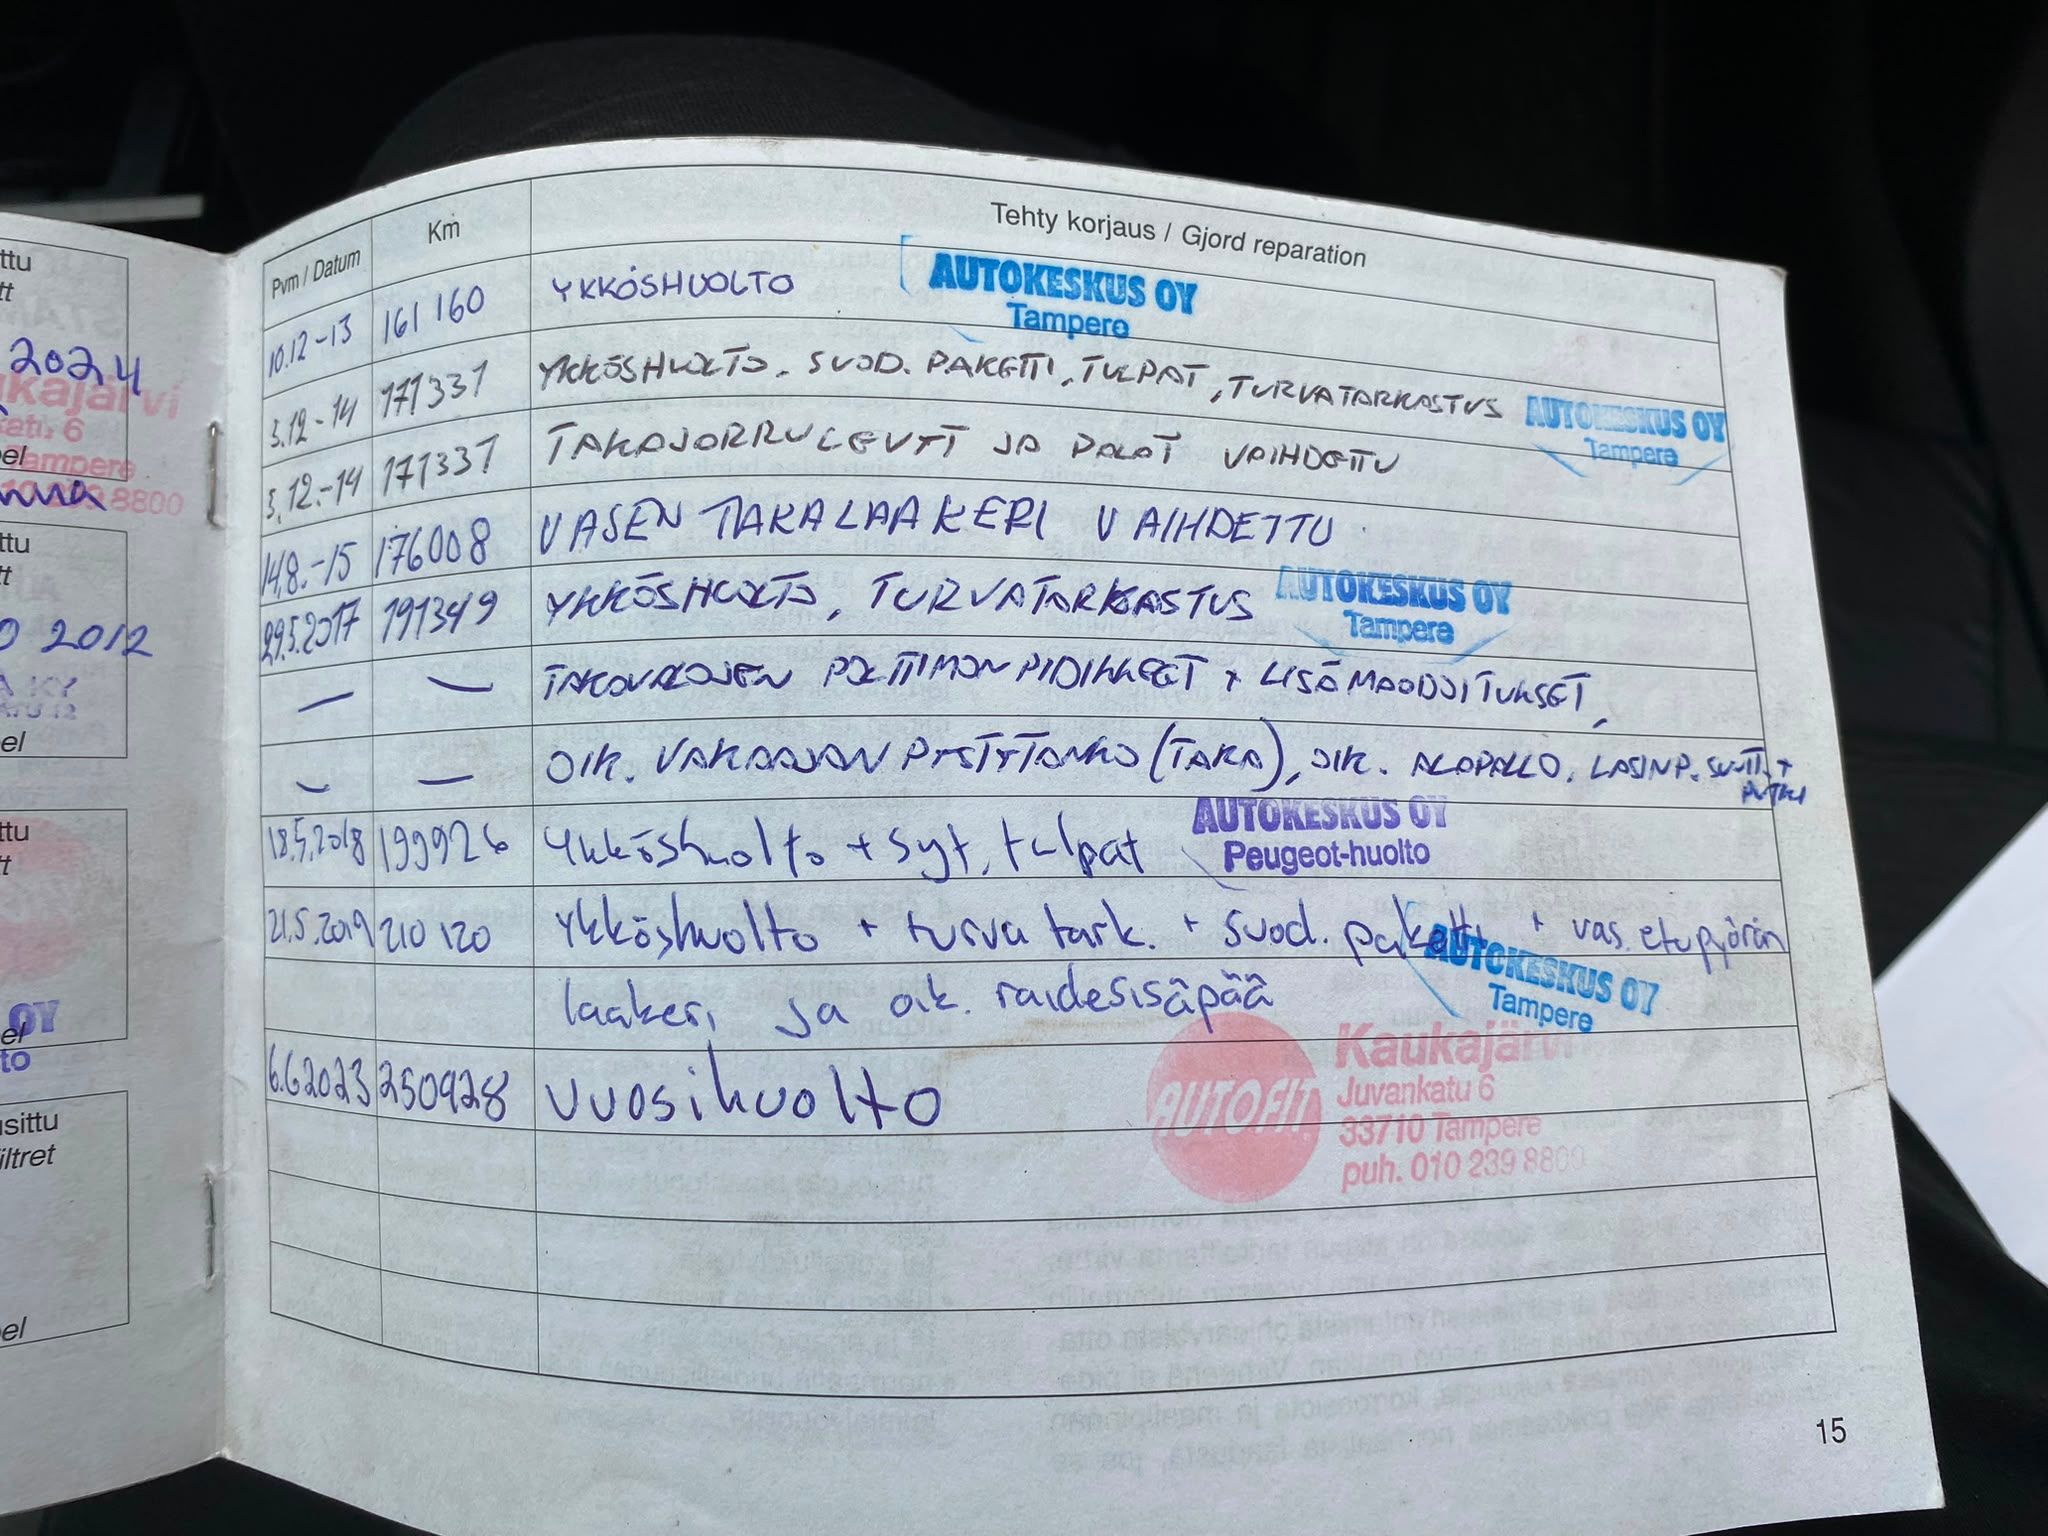 ttu
tt
2024
Kaukajärvi
6
el
Tampere
8800
ttu
tt
2012
el
ttu
tt
OY
el
to
usittu
iltret
el
Pvm / Datum Km Tehty korjaus / Gjord reparation
10.12-13 161 160 YKKÖSHUOLTO AUTOKESKUS OY
Tampere
3.12-14 171331 YKKÖSHUOLTO, SUOD. PAKETTI, TULPAT, TURVATARKASTUS AUTOKESKUS OY
Tampere
3.12.-14 171331 TAKAJARRULEVYT JA PALAT VAIHDETTU
14.8.-15 176008 VASEN TAKALAAKERI VAIHDETTU
29.5.2017 191349 YKKÖSHUOLTO, TURVATARKASTUS AUTOKESKUS OY
Tampere
— — TAKAVALOJEN POLTTIMON PIDIKKEET + LISÄMAADOITUKSET,
— — OIK. VAKAAJAN PYSTYTANKO (TAKA), OIK. ALAPALLO, LASINP. SUUTT. +
PUTKI
18.5.2018 199926 Ykköshuolto + syt. tulpat AUTOKESKUS OY
Peugeot-huolto
21.5.2019 210 120 Ykköshuolto + turva tark. + suod. paketti + vas. etupyörän
laakeri ja oik. raidesisäpää AUTOKESKUS OY
Tampere
6.6.2023 250928 Vuosihuolto AUTOFIT Kaukajärvi
Juvankatu 6
33710 Tampere
puh. 010 239 8800
15